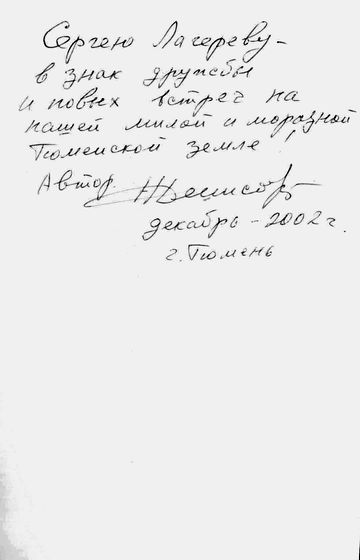 Сергею Лагереву –
в знак дружбы
и новых встреч на
нашей милой и морозной
Тюменской земле!
Автор. Денисов
декабрь – 2002 г.
г. Тюмень